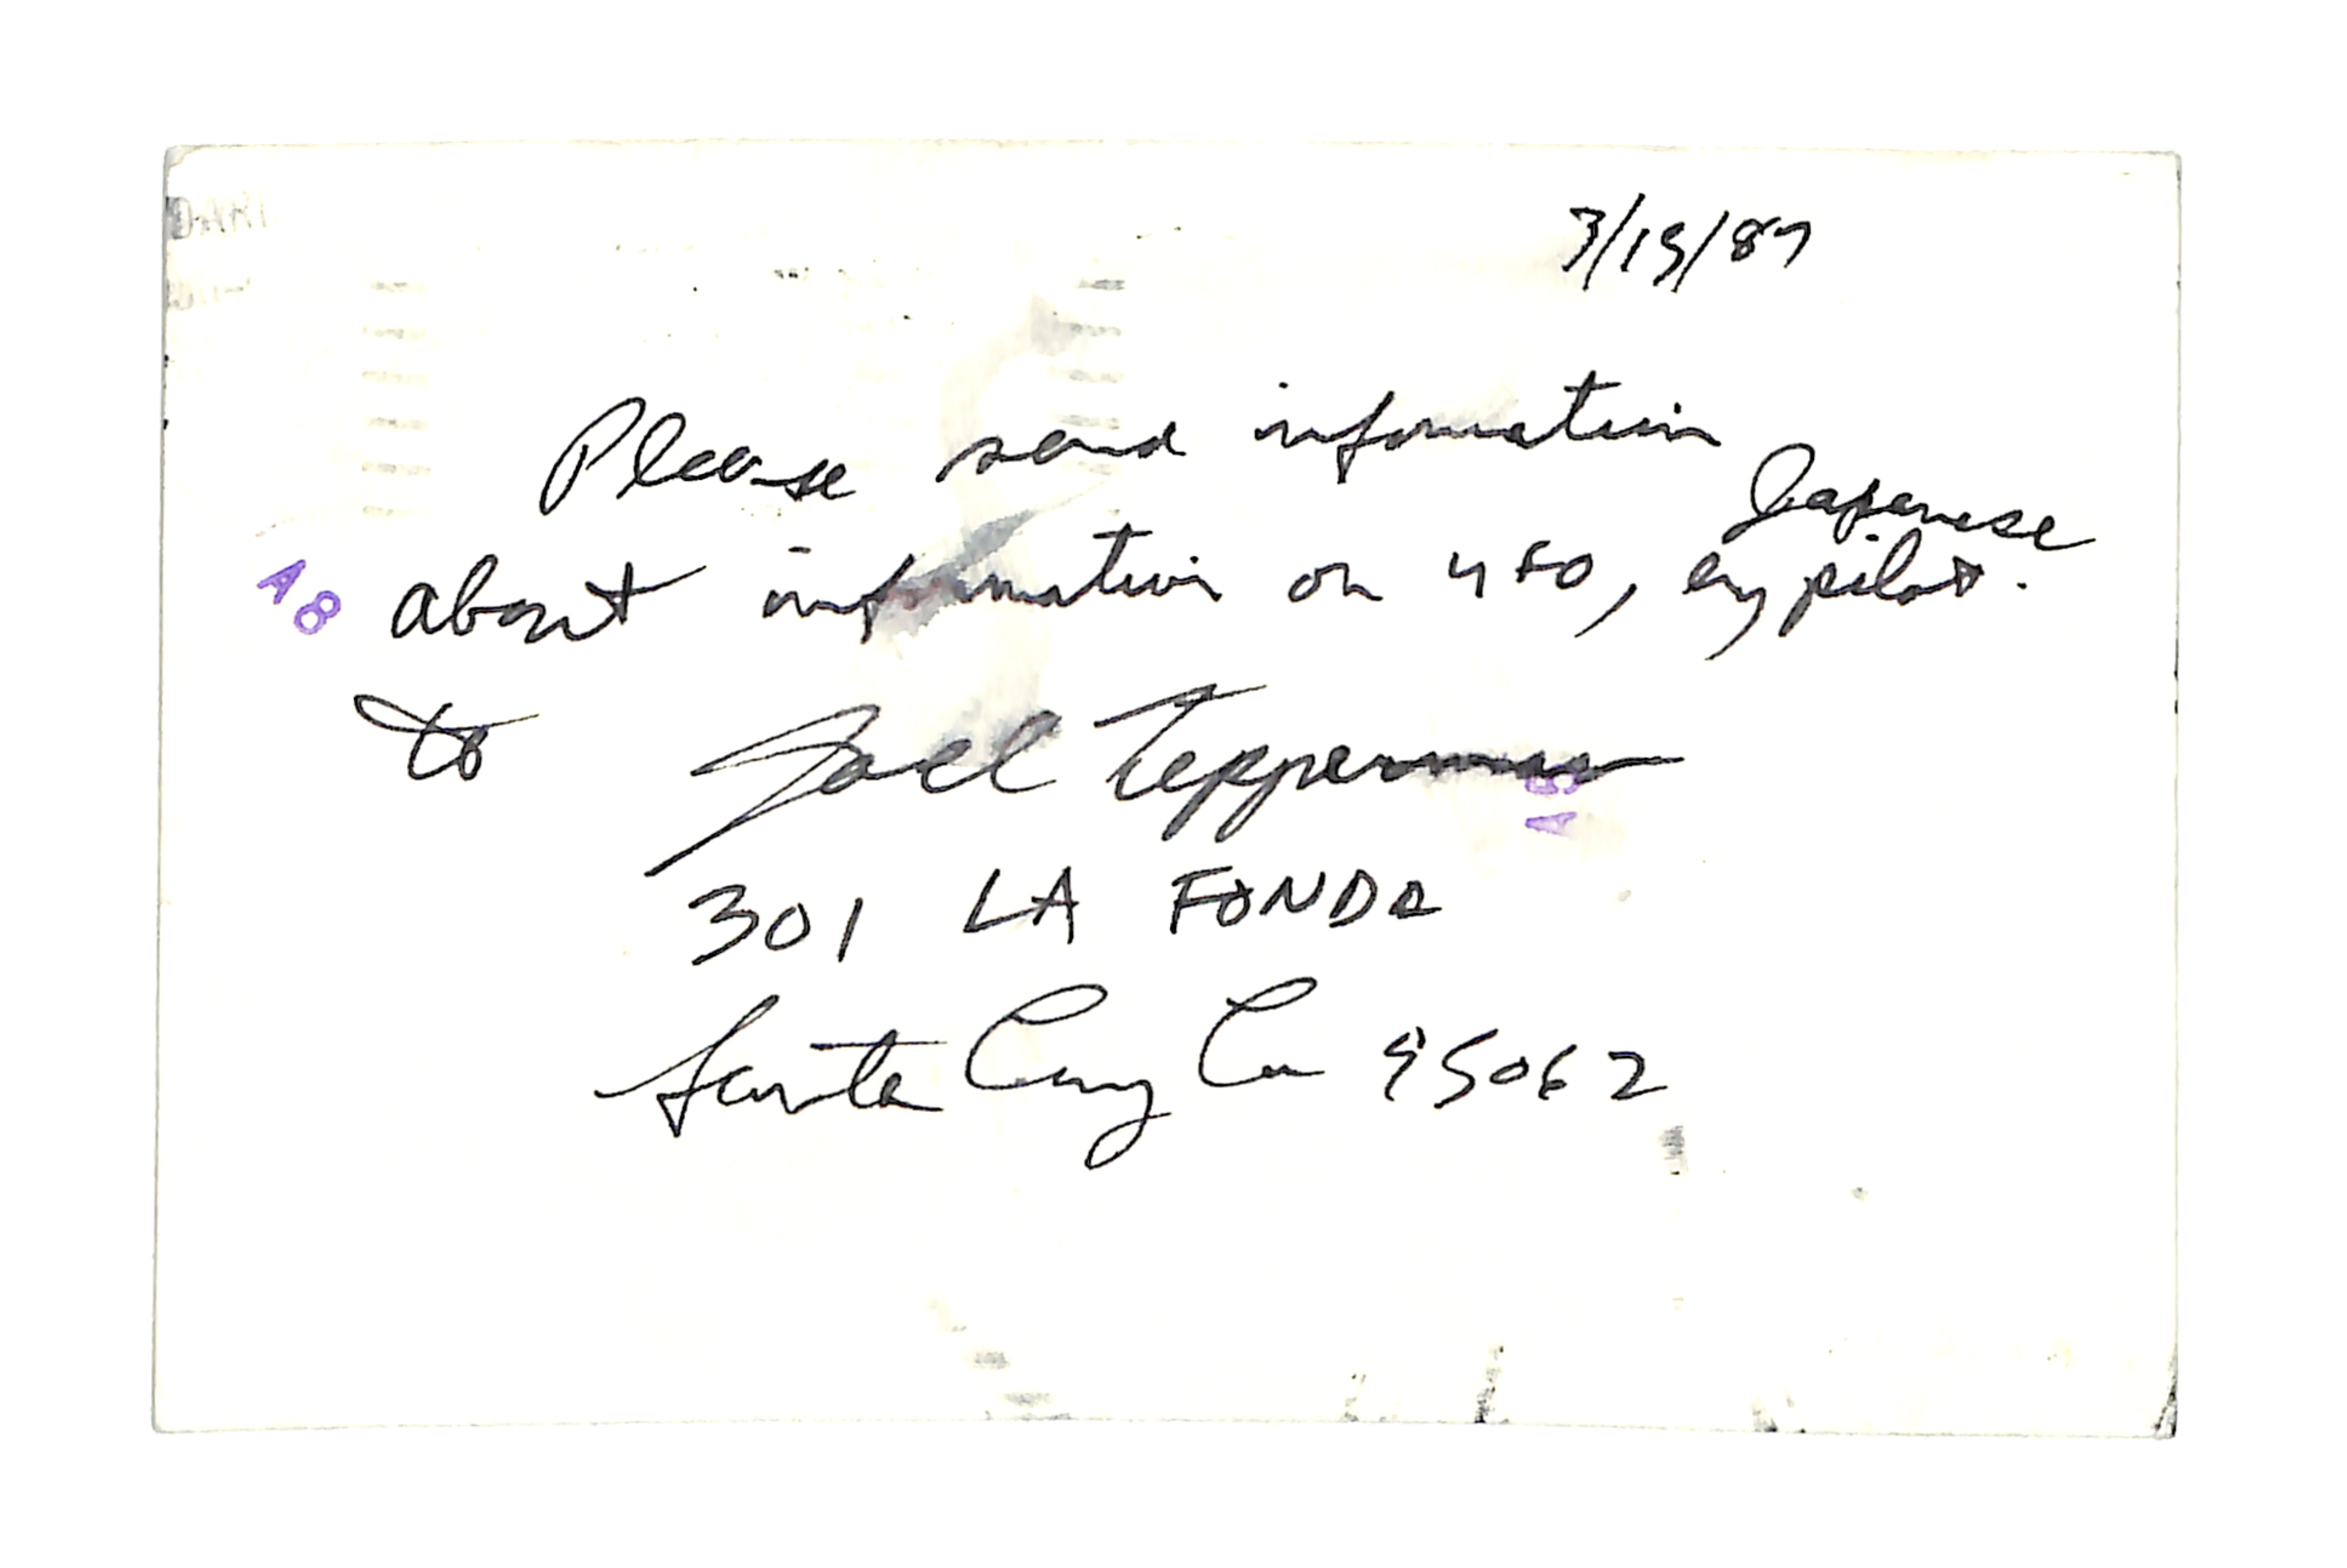 3/15/87
Please send information
Japanese
about information on UFO, eg pilot.
to Joel Tepperman
301 LA FONDA
Santa Cruz Ca 95062
A8